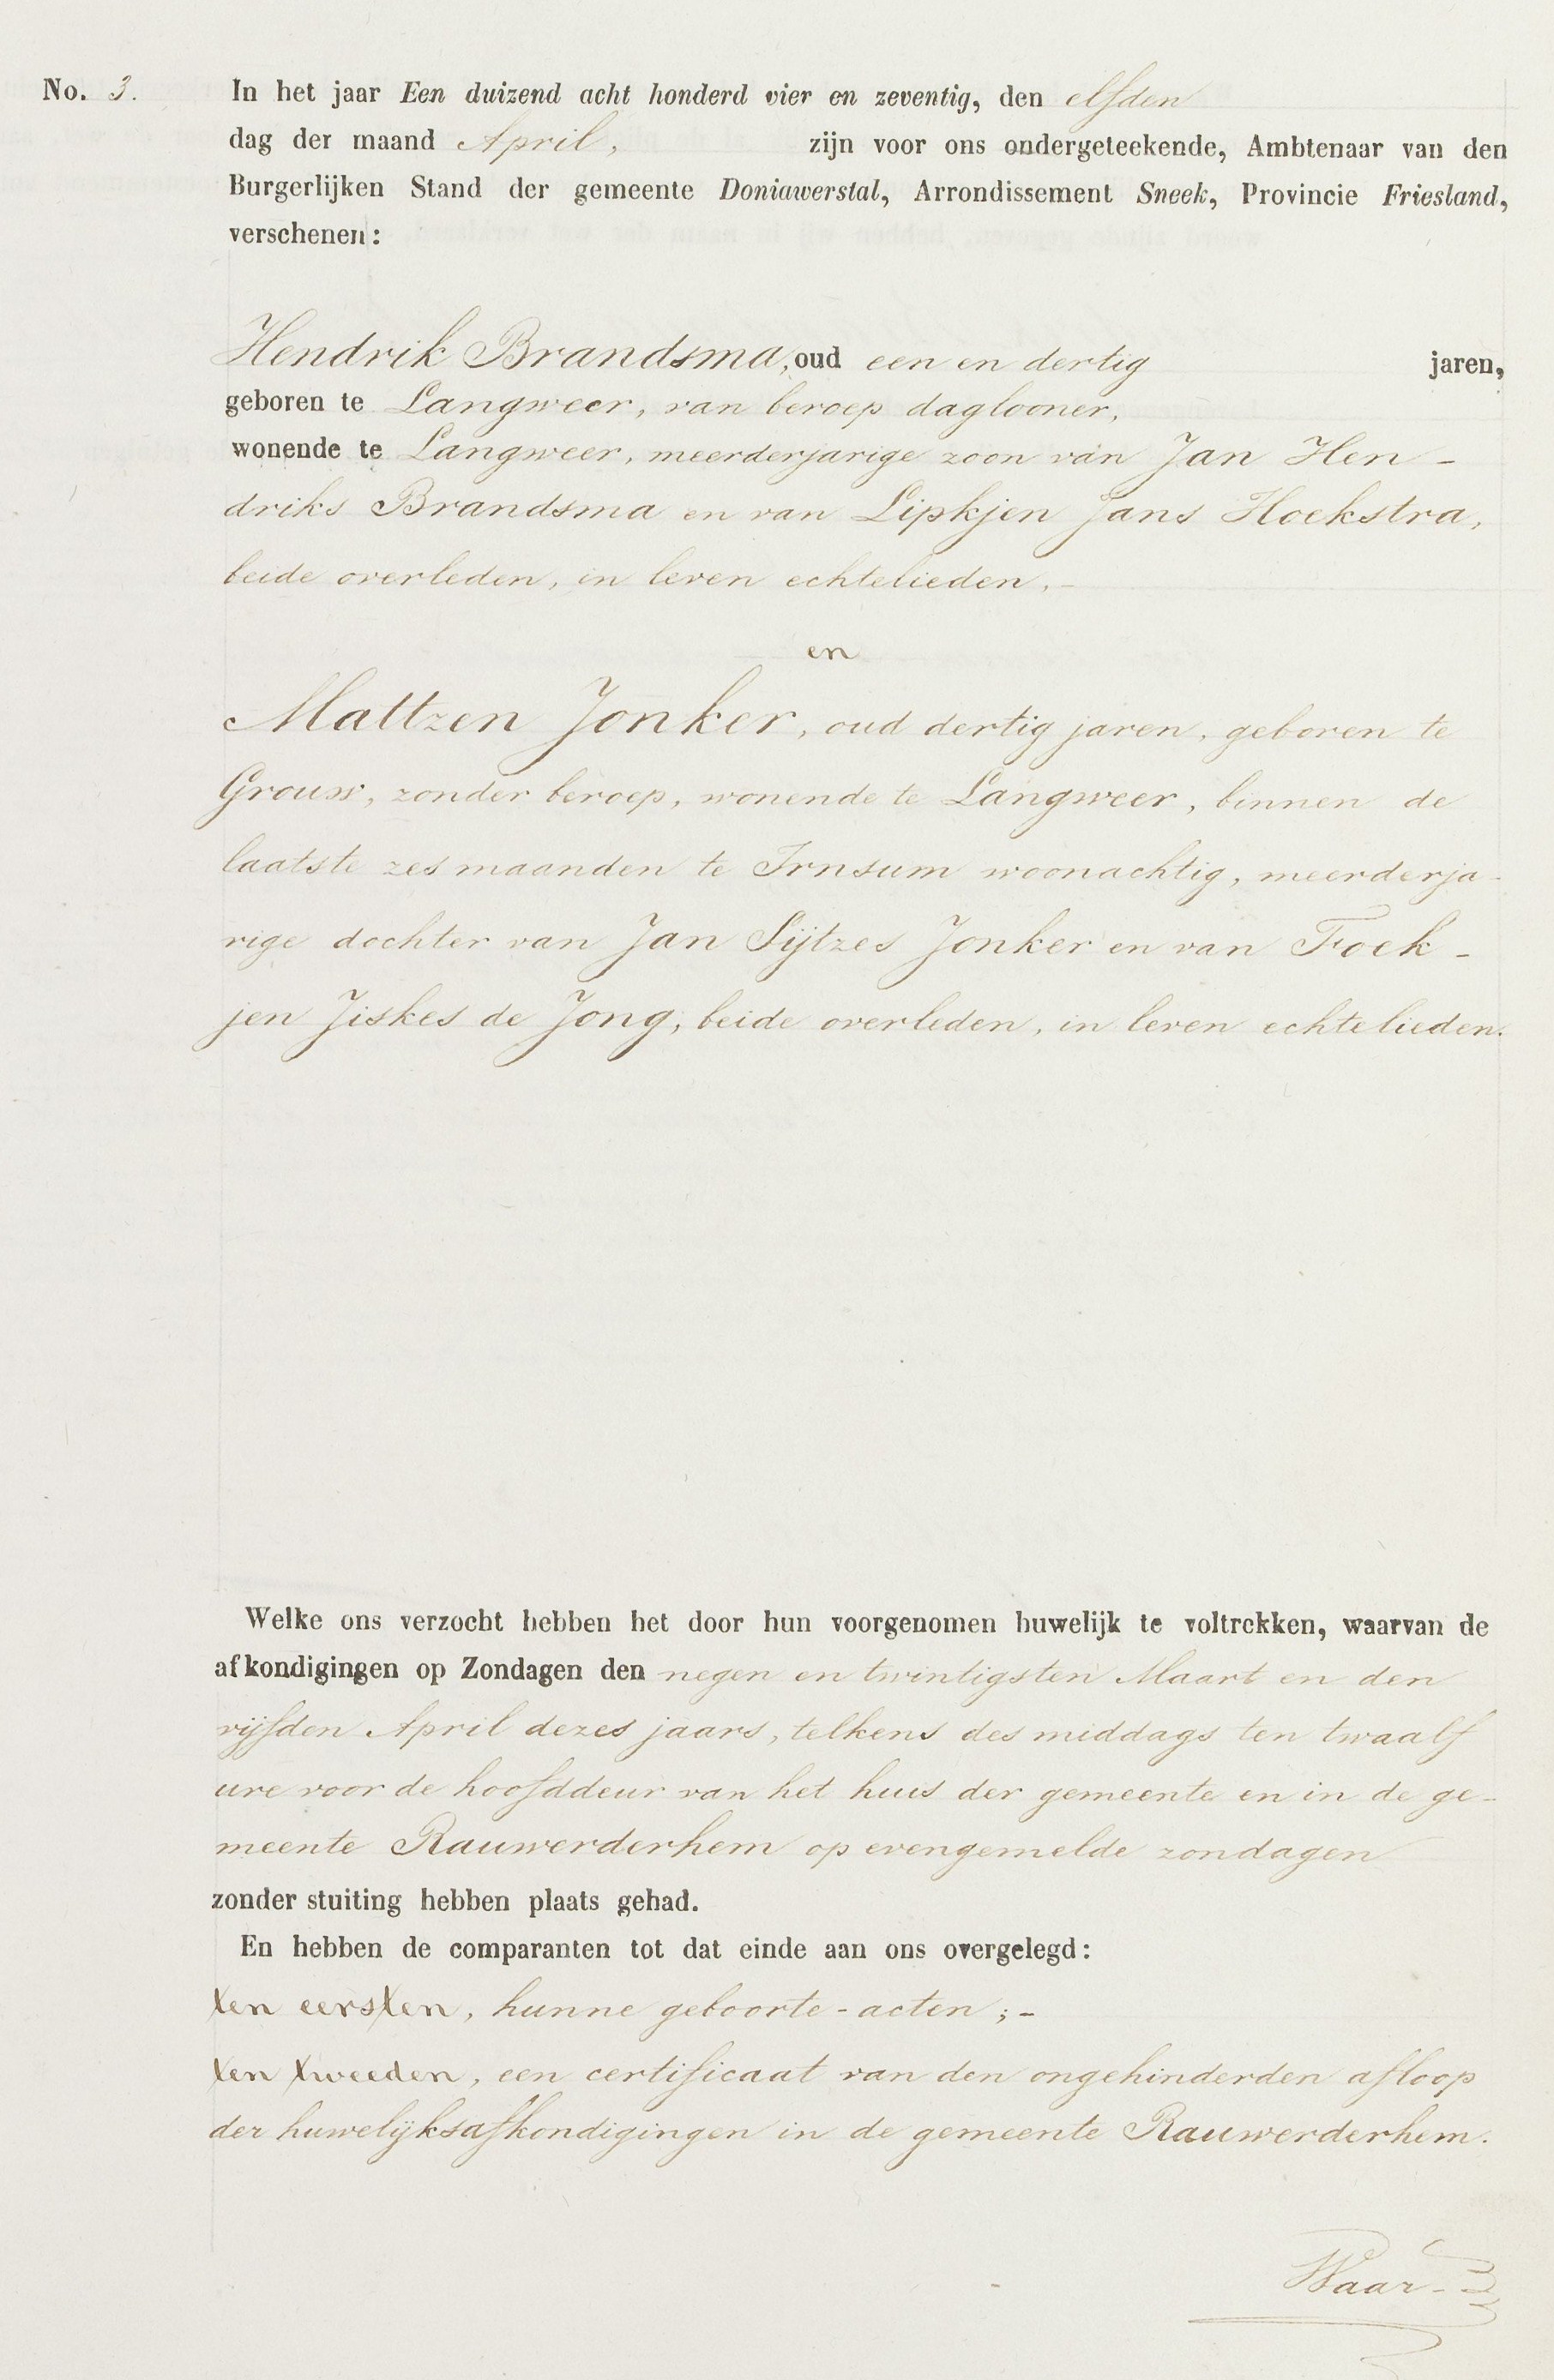 No. 3. In het jaar Een duizend acht honderd vier en zeventig, den elfden
dag der maand April, zijn voor ons ondergeteekende, Ambtenaar van den
Burgerlijken Stand der gemeente Doniawerstal, Arrondissement Sneek, Provincie Friesland,
verschenen:
Hendrik Brandsma, oud een en dertig jaren,
geboren te Langweer, van beroep daglooner,
wonende te Langweer, meerderjarige zoon van Jan Hen-
driks Brandsma en van Lipkjen Jans Hoekstra,
beide overleden, in leven echtelieden.-
en
Maltzen Jonker, oud dertig jaren, geboren te
Grouw, zonder beroep, wonende te Langweer, binnen de
laatste zes maanden te Irnsum woonachtig, meerderja-
rige dochter van Jan Sijtzes Jonker en van Foek-
jen Jiskes de Jong, beide overleden, in leven echtelieden.
Welke ons verzocht hebben het door hun voorgenomen huwelijk te voltrekken, waarvan de
afkondigingen op Zondagen den negen en twintigsten Maart en den
vijfden April dezes jaars, telkens des middags ten twaalf
ure voor de hoofddeur van het huis der gemeente en in de ge-
meente Rauwerderhem op evengemelde zondagen
zonder stuiting hebben plaats gehad.
En hebben de comparanten tot dat einde aan ons overgelegd:
ten eersten, hunne geboorte-acten;-
ten tweeden, een certificaat van den ongehinderden afloop
der huwelijksafkondigingen in de gemeente Rauwerderhem.
Waar-